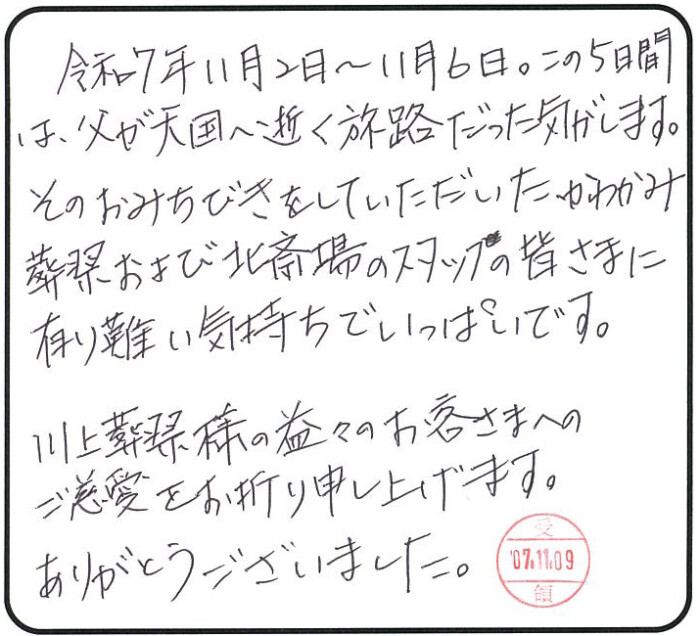 令和7年11月2日～11月6日。この5日間
は、父が天国へ逝く旅路だった気がします。
そのおみちびきをしていただいたかわかみ
葬祭および北斎場のスタッフの皆さまに
有り難い気持ちでいっぱいです。
川上葬祭様の益々のお客さまへの
ご慈愛をお祈り申し上げます。
ありがとうございました。
受
'07.11.09
領